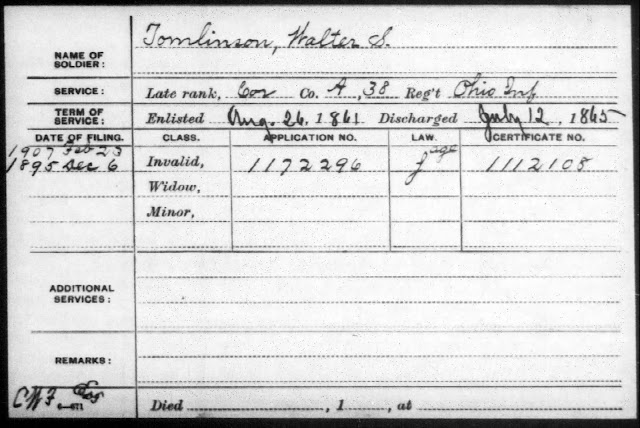 Tomlinson, Walter S.
NAME OF
SOLDIER:
SERVICE: Late rank, Cor Co. A, 38 Reg't Ohio Inf
TERM OF
SERVICE: Enlisted Aug. 26, 1861 Discharged July 12, 1865
DATE OF FILING. CLASS. APPLICATION NO. LAW. CERTIFICATE NO.
1907 Feb 23 age
1895 Dec 6 Invalid, 1172296 J 1112108
Widow,
Minor,
ADDITIONAL
SERVICES:
REMARKS:
CWF
6—671 Died , 1 , at